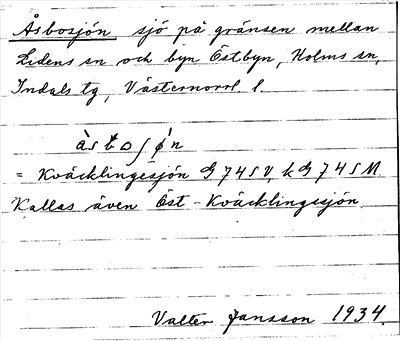 Åsbosjön sjö på gränsen mellan
Lidens sn och byn Östbyn, Holms sn,
Indals tg, Västernorrl. l.
= Kväcklingesjön G 74 S V, k G 74 S M.
Kallas även Öst-Kväcklingsjön
Valter Jansson 1934.